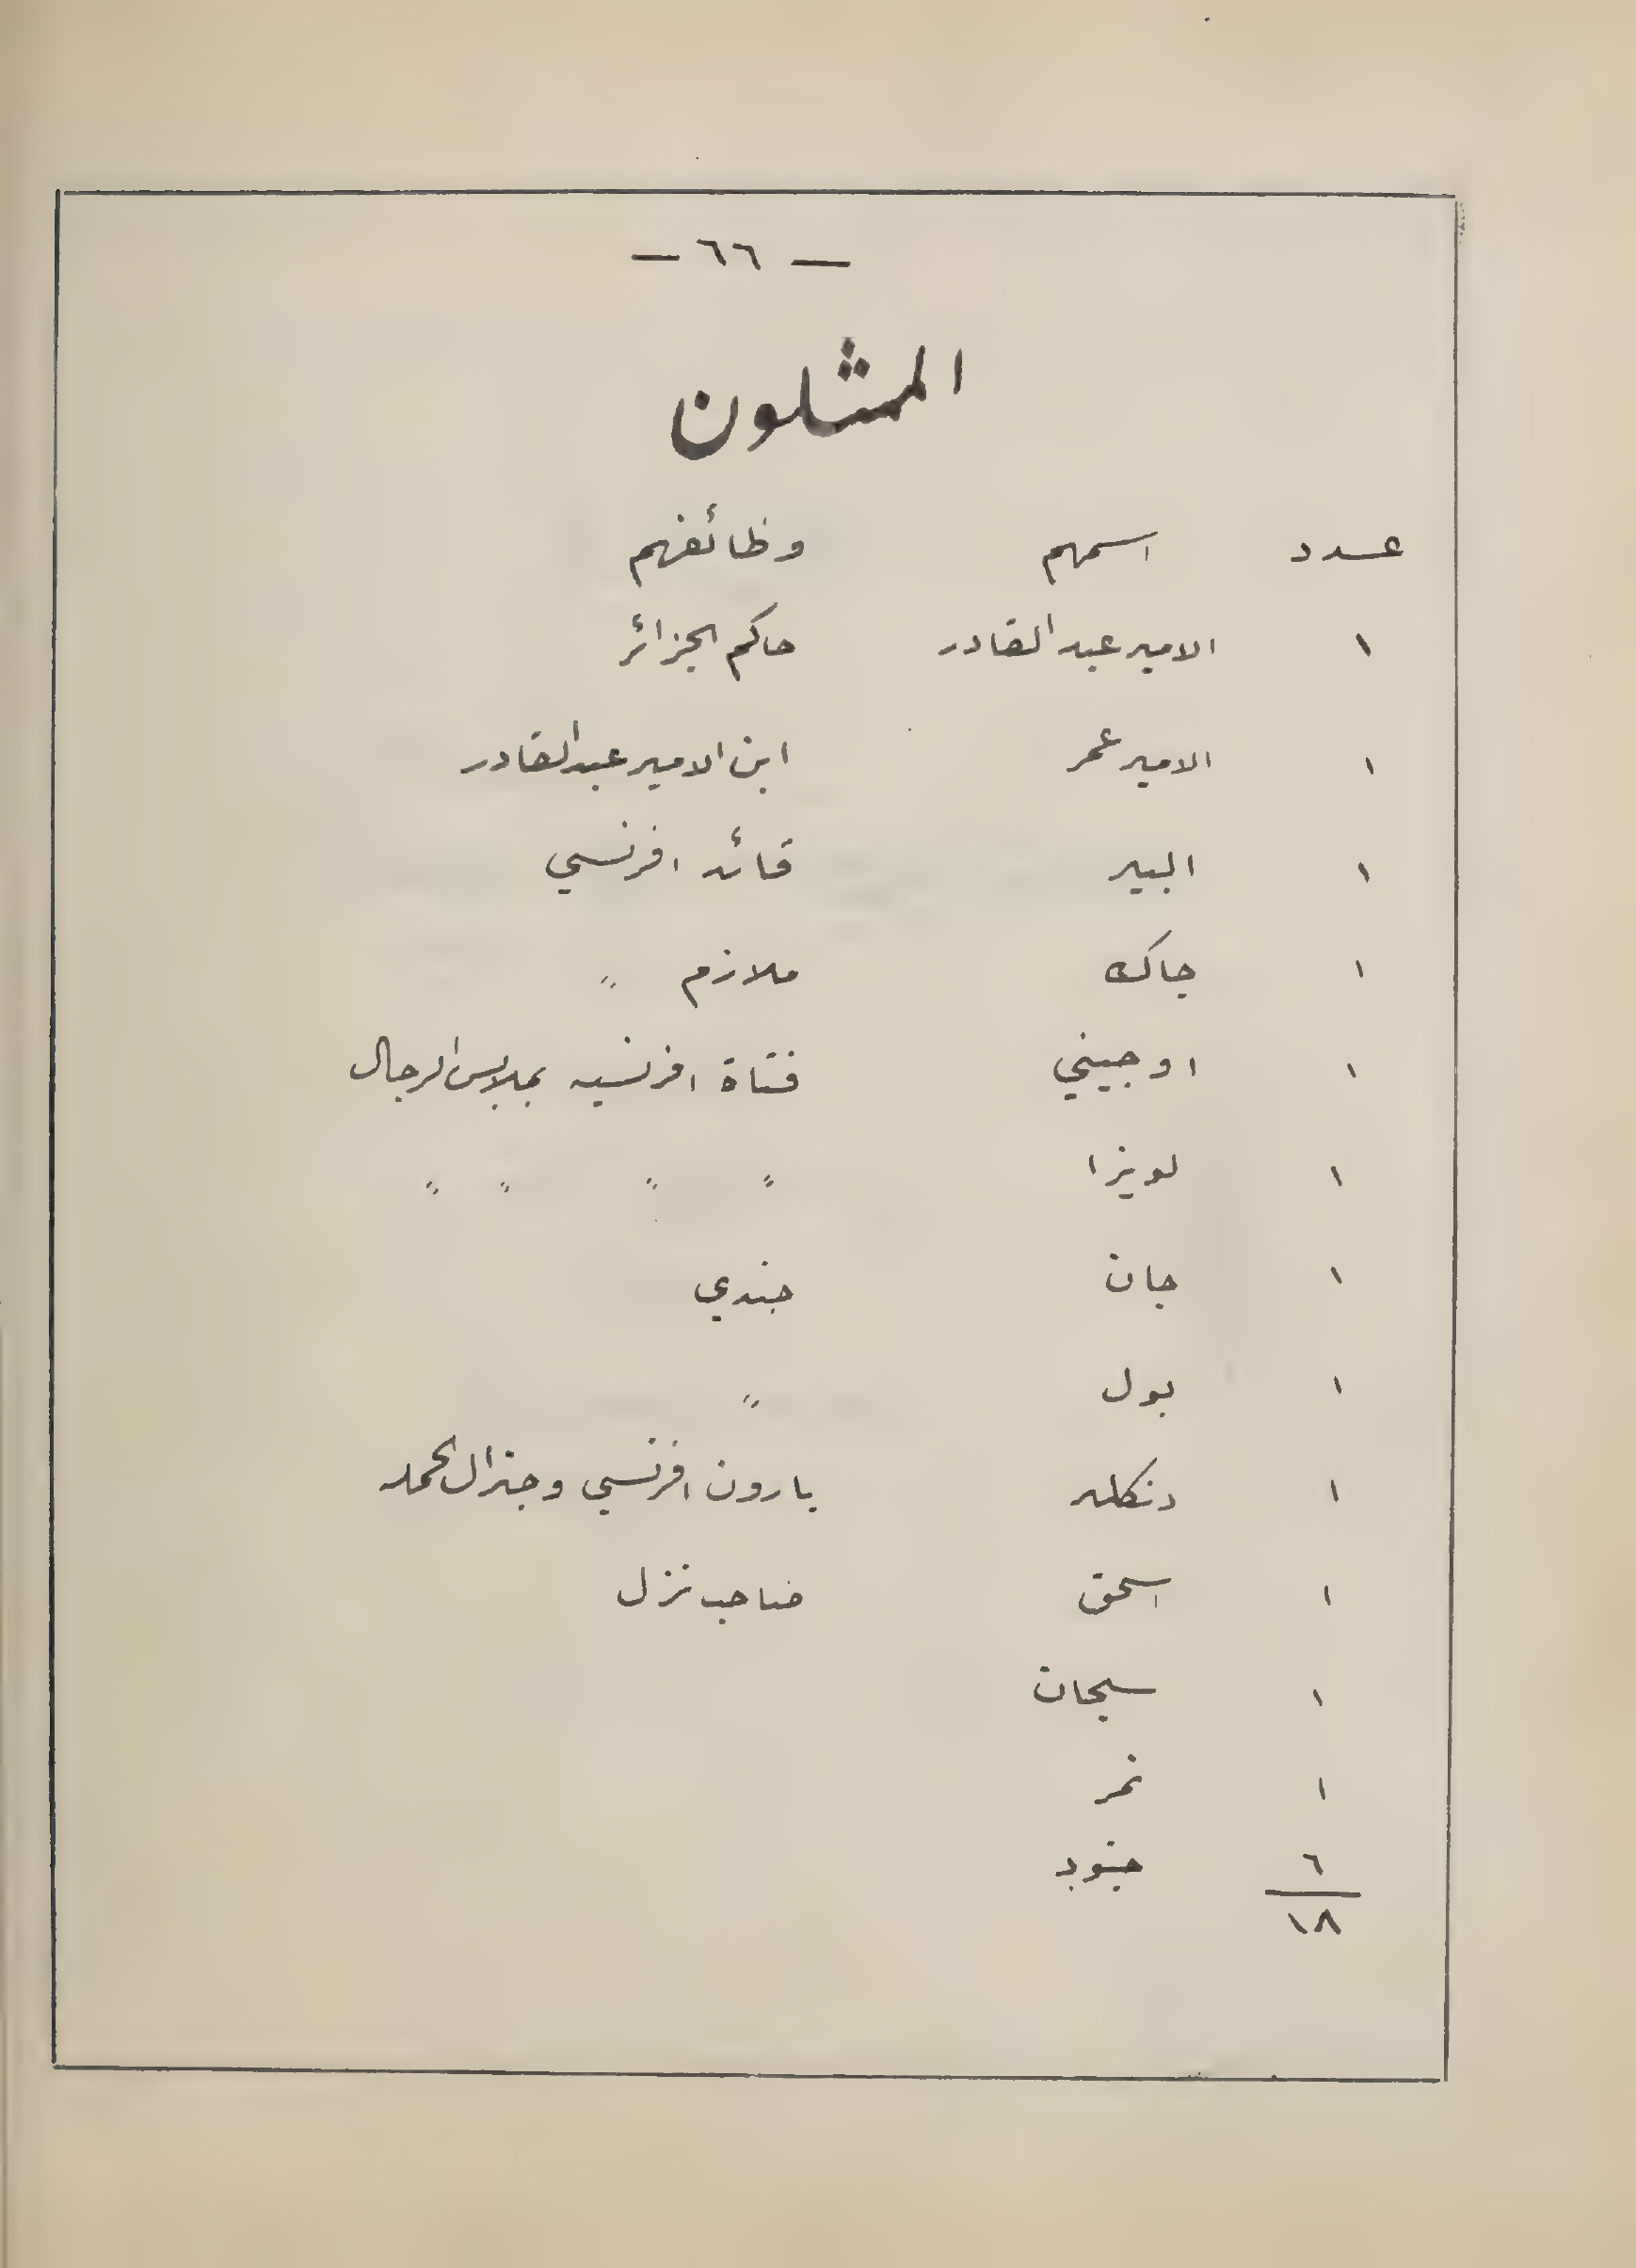 — ٦٦ —
الممثلون
عدد اسمهم وظائفهم
١ الامير عبد القادر حاكم الجزائر
١ الامير عمر ابن الامير عبد القادر
١ البير قائد افرنسي
١ جاك ملازم "
١ اوجيني فتاة افرنسيه بملابس الرجال
١ لويزا " " " "
١ جان جندي
١ بول "
١ دنكلد بارون افرنسي وجنرال الحمله
١ اسحق صاحب نزل
١ سبحان
١ نمر
٦ جنود
١٨